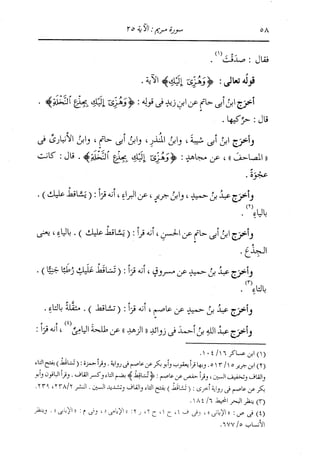 ٥٨ سورة مريم : الآية ٢٥
فقال : صدقت(١) .
قولُه تعالى : ﴿وَهُزِّىٓ إِلَيْكِ﴾ الآية .
أخرَج ابنُ أبى حاتمٍ عن ابنِ زيدٍ فى قوله : ﴿وَهُزِّىٓ إِلَيْكِ بِجِذْعِ ٱلنَّخْلَةِ﴾ .
قال : حرِّكيها .
وأخرَج ابنُ أبى شيبةَ ، وابنُ المنذرِ ، وابنُ أبى حاتمٍ ، وابنُ الأنبارىِّ فى
« المصاحفِ » ، عن مجاهدٍ : ﴿وَهُزِّىٓ إِلَيْكِ بِجِذْعِ ٱلنَّخْلَةِ﴾ . قال : كانت
عجوةً .
وأخرَج عبدُ بنُ حميدٍ ، وابنُ جريرٍ ، عن البراءِ ، أنه قرأ : ( يَسَّاقط عليك ) .
بالياءِ(٢) .
وأخرَج ابنُ أبى حاتمٍ عن الحسنِ ، أنه قرأ : ( يَسَّاقط عليك ) . بالياءِ ، يعنى
الجذعَ .
وأخرَج عبدُ بنُ حميدٍ عن مسروقٍ ، أنه قرأ : ( تساقط عليكِ رُطَبًا جَنِيًّا ) .
بالتاءِ(٣) .
وأخرَج عبدُ بنُ حميدٍ عن عاصمٍ ، أنه قرأ : ( تسَّاقط ) . مثقَّلةً بالتاءِ .
وأخرَج عبدُ اللهِ بنُ أحمدَ فى زوائدِ « الزهدِ » عن طلحةَ اليامىِّ(٤) ، أنه قرأ :
(١) ابن عساكر ١٠٤/١٦ .
(٢) ابن جرير ٥١٣/١٥ . وبها قرأ يعقوب وأبو بكر عن عاصم فى رواية . وقرأ حمزة : ( تَسَاقط ) بفتح التاء
والقاف وتخفيف السين ، وقرأ حفص عن عاصم : ﴿تُسَاقِط﴾ بضم التاء وكسر القاف . وقرأ الباقون وأبو
بكر عن عاصم فى رواية أخرى : ( تَسَّاقط ) بفتح التاء والقاف وتشديد السين . النشر ٢٣٨/٢ ، ٢٣٩ .
(٣) ينظر البحر المحيط ١٨٤/٦ .
(٤) فى ص : « الإيانى » ، وفى ف ١ ، ح ١ ، ح ٢ ، ر ٢ : « الإيامى » ، وفى م : « الإيامى » . وينظر
الأنساب ٦٧٧/٥ .